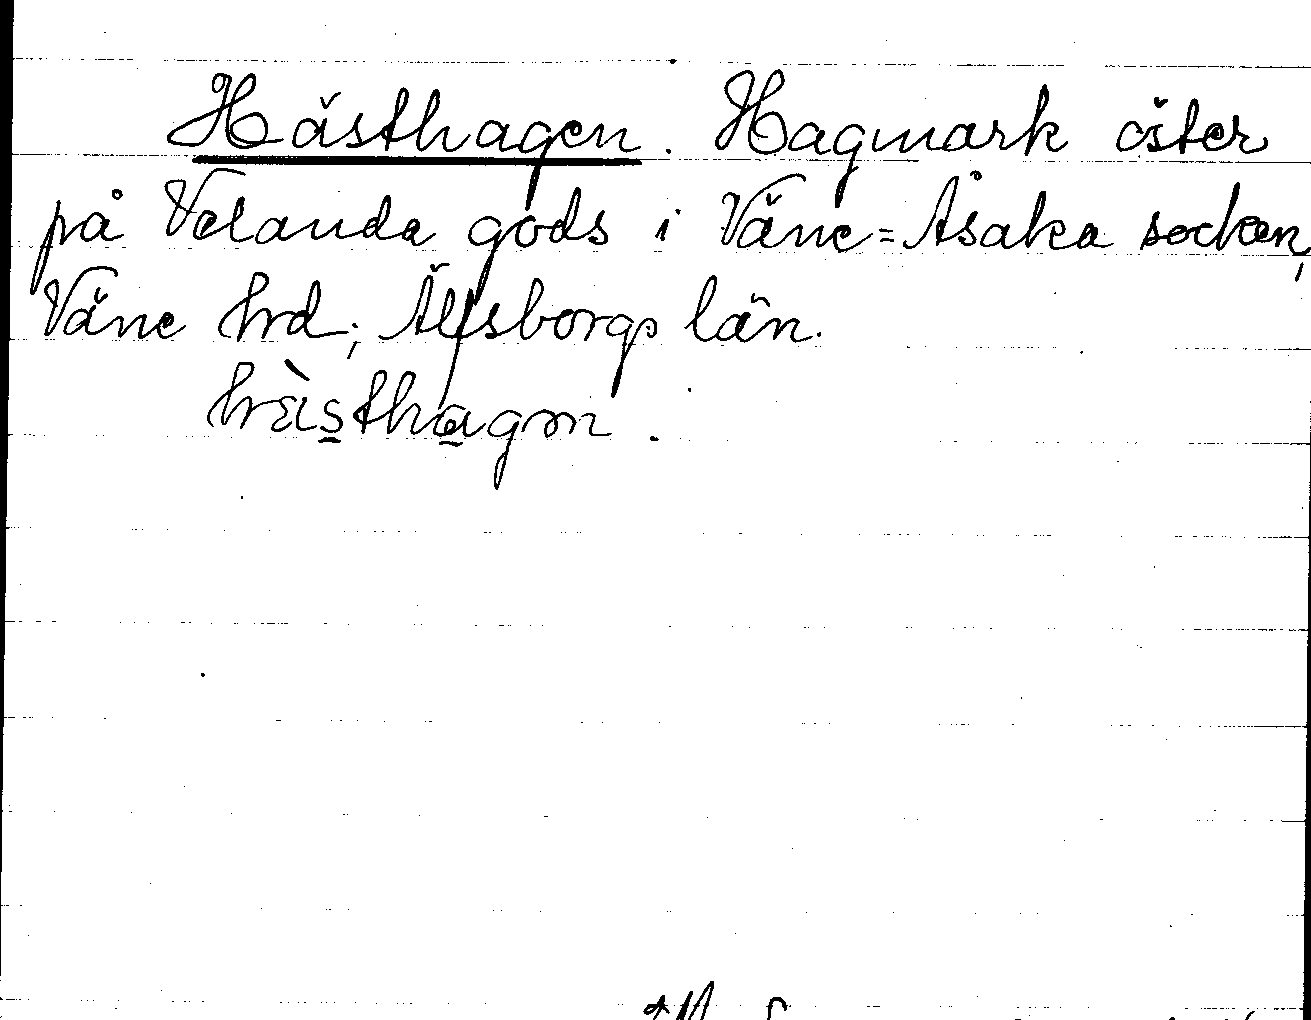 Hästhagen. Hagmark öster
på Velanda gods i Väne=Åsaka socken,
Väne hrd; Älfsborgs län.
hàsthagen.